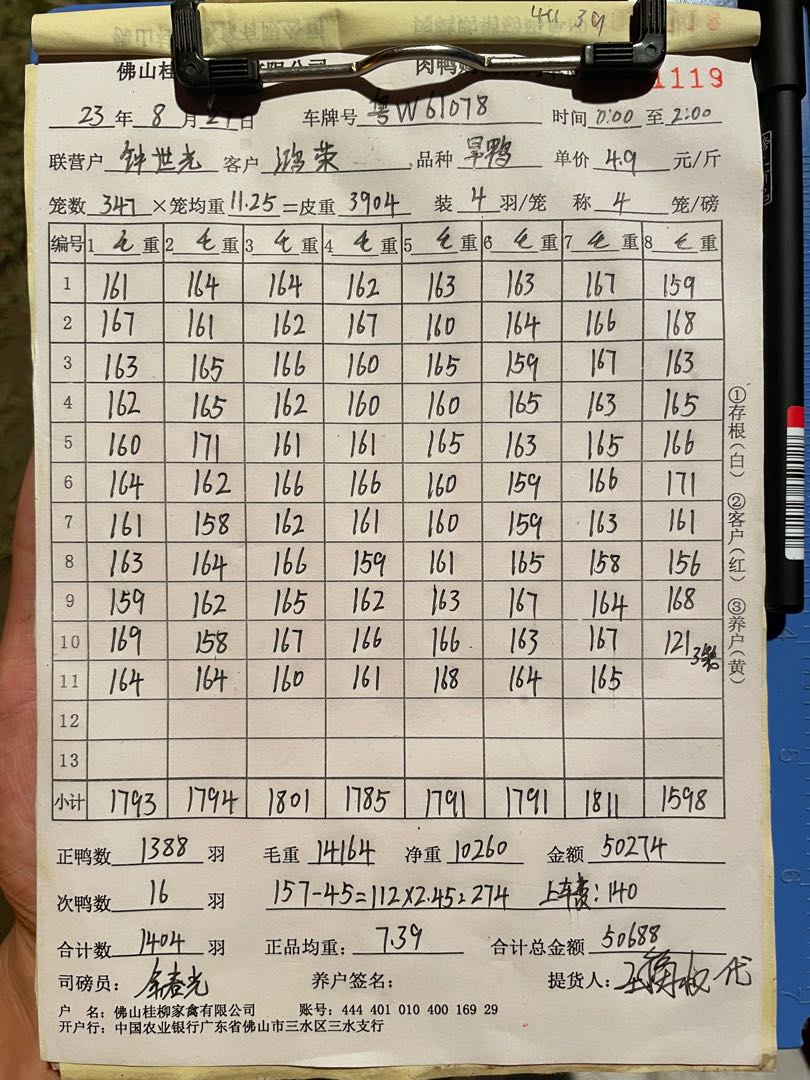 411 39
佛山桂 有限公司 肉鸭 1119
23 年 8 月 27 日 车牌号 粤W61078 时间 0:00 至 2:00
联营户 钟世光 客户 鸿荣 品种 旱鸭 单价 4.9 元/斤
笼数 347 ×笼均重 11.25 =皮重 3904 装 4 羽/笼 称 4 笼/磅
编号 1 毛 重 2 毛 重 3 毛 重 4 毛 重 5 毛 重 6 毛 重 7 毛 重 8 毛 重
1 161 164 164 162 163 163 167 159
2 167 161 162 167 160 164 166 168
3 163 165 166 160 165 159 167 163
4 162 165 162 160 160 165 163 165
5 160 171 161 161 165 163 165 166
6 164 162 166 166 160 159 166 171
7 161 158 162 161 160 159 163 161
8 163 164 166 159 161 165 158 156
9 159 162 165 162 163 167 164 168
10 169 158 167 166 166 163 167 121 3笼
11 164 164 160 161 168 164 165
12
13
小计 1793 1794 1801 1785 1791 1791 1811 1598
①存根(白) ②客户(红) ③养户(黄)
正鸭数 1388 羽 毛重 14164 净重 10260 金额 50274
次鸭数 16 羽 157-45=112×2.45=274 上车费:140
合计数 1404 羽 正品均重: 7.39 合计总金额 50688
司磅员: 养户签名: 提货人: 代
户 名: 佛山桂柳家禽有限公司 账号: 444 401 010 400 169 29
开户行: 中国农业银行广东省佛山市三水区三水支行